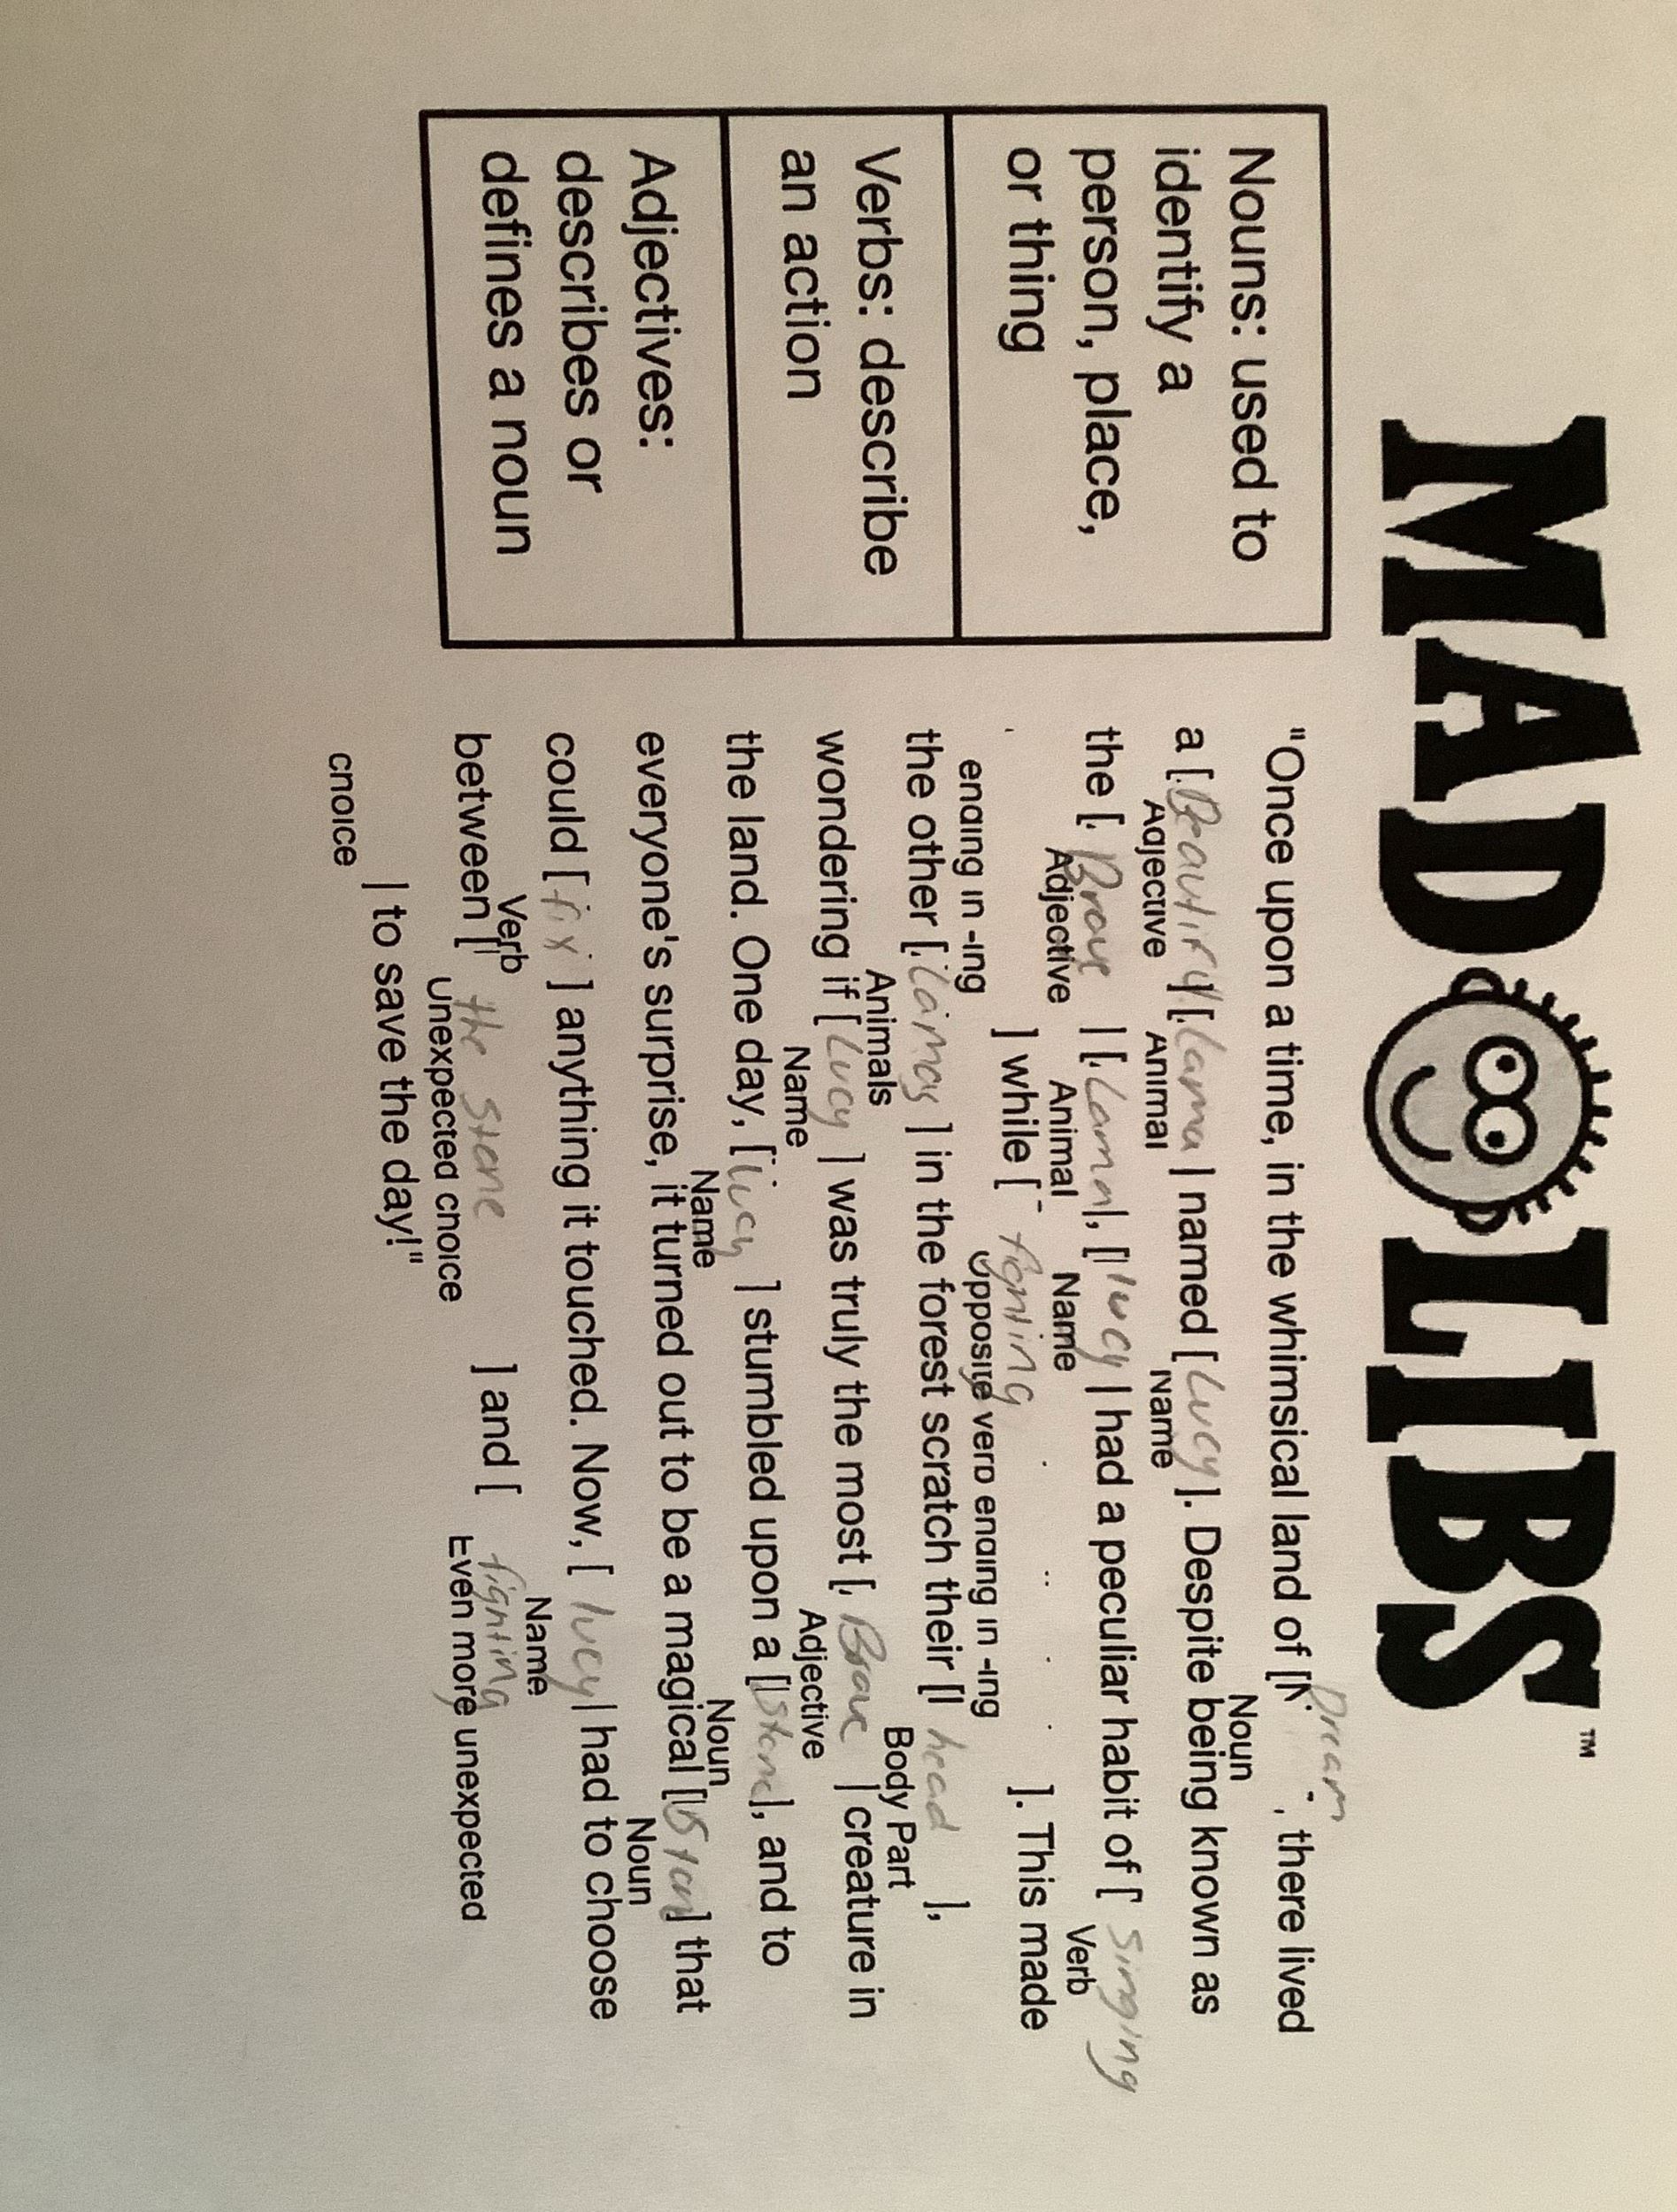 MAD LIBS™
Nouns: used to
identify a
person, place,
or thing
Verbs: describe
an action
Adjectives:
describes or
defines a noun
Dream
"Once upon a time, in the whimsical land of [ , there lived
Noun
a [Beautiful] [Lama] named [Lucy]. Despite being known as
Adjective Animal Name
the [Brave] [Lama], [lucy] had a peculiar habit of [singing
Adjective Animal Name Verb
] while [fighting ]. This made
ending in -ing Opposite verb ending in -ing
the other [Lamas] in the forest scratch their [head],
Animals Body Part
wondering if [Lucy] was truly the most [Brave] creature in
Name Adjective
the land. One day, [lucy] stumbled upon a [stone], and to
Name Noun
everyone's surprise, it turned out to be a magical [Ston] that
Noun
could [fix] anything it touched. Now, [lucy] had to choose
Verb Name
between [the stone ] and [fighting
Unexpected choice Even more unexpected
] to save the day!"
choice